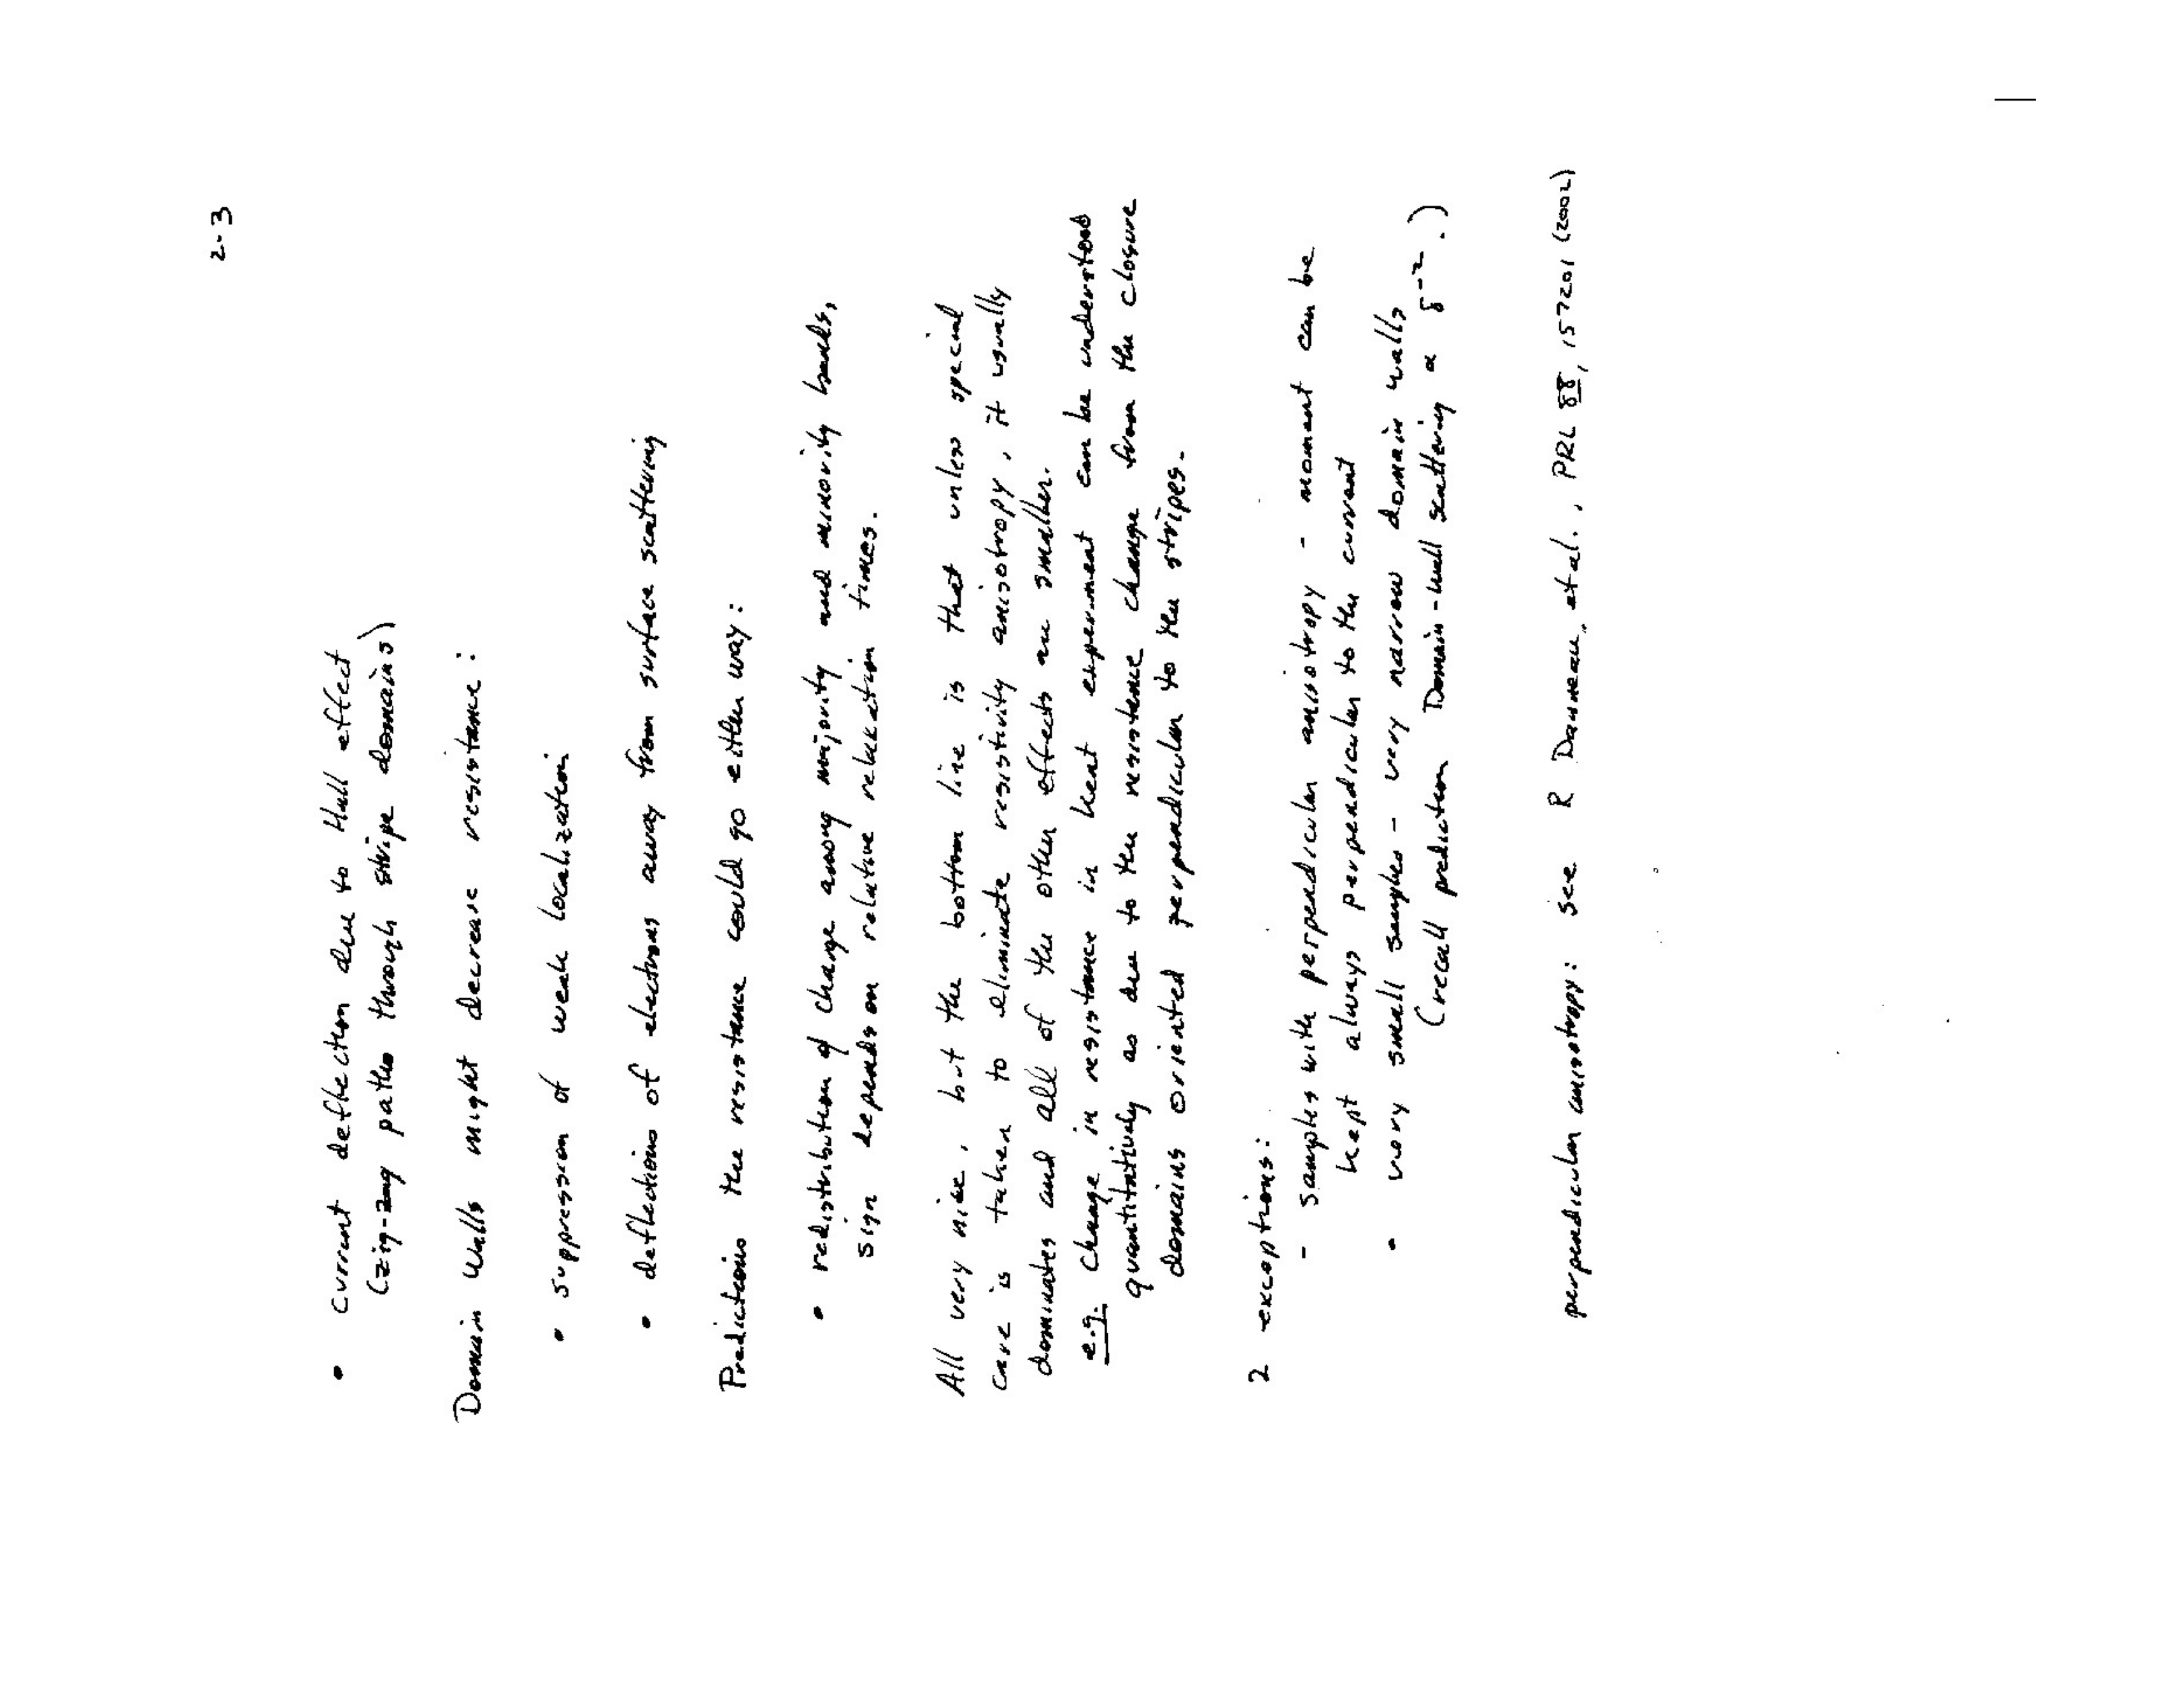 2-3
• current deflection due to Hall effect
(zig-zag paths through stripe domains)
Domain walls might decrease resistance:
• suppression of weak localization
• deflections of electrons away from surface scattering
Predictions the resistance could go either way:
• redistribution of charge among majority and minority bands,
sign depends on relative relaxation times.
All very nice, but the bottom line is that unless special
care is taken to eliminate resistivity anisotropy, it usually
dominates and all of the other effects are smaller.
e.g. change in resistance in Kent experiment can be understood
quantitatively as due to the resistance change from the closure
domains oriented perpendicular to the stripes.
2 exceptions:
- samples with perpendicular anisotropy - moment can be
kept always perpendicular to the current
• very small samples - very narrow domain walls
(recall prediction Domain-wall scattering α δ⁻².)
perpendicular anisotropy: see R Danneau, et al., PRL 88, 157201 (2002)